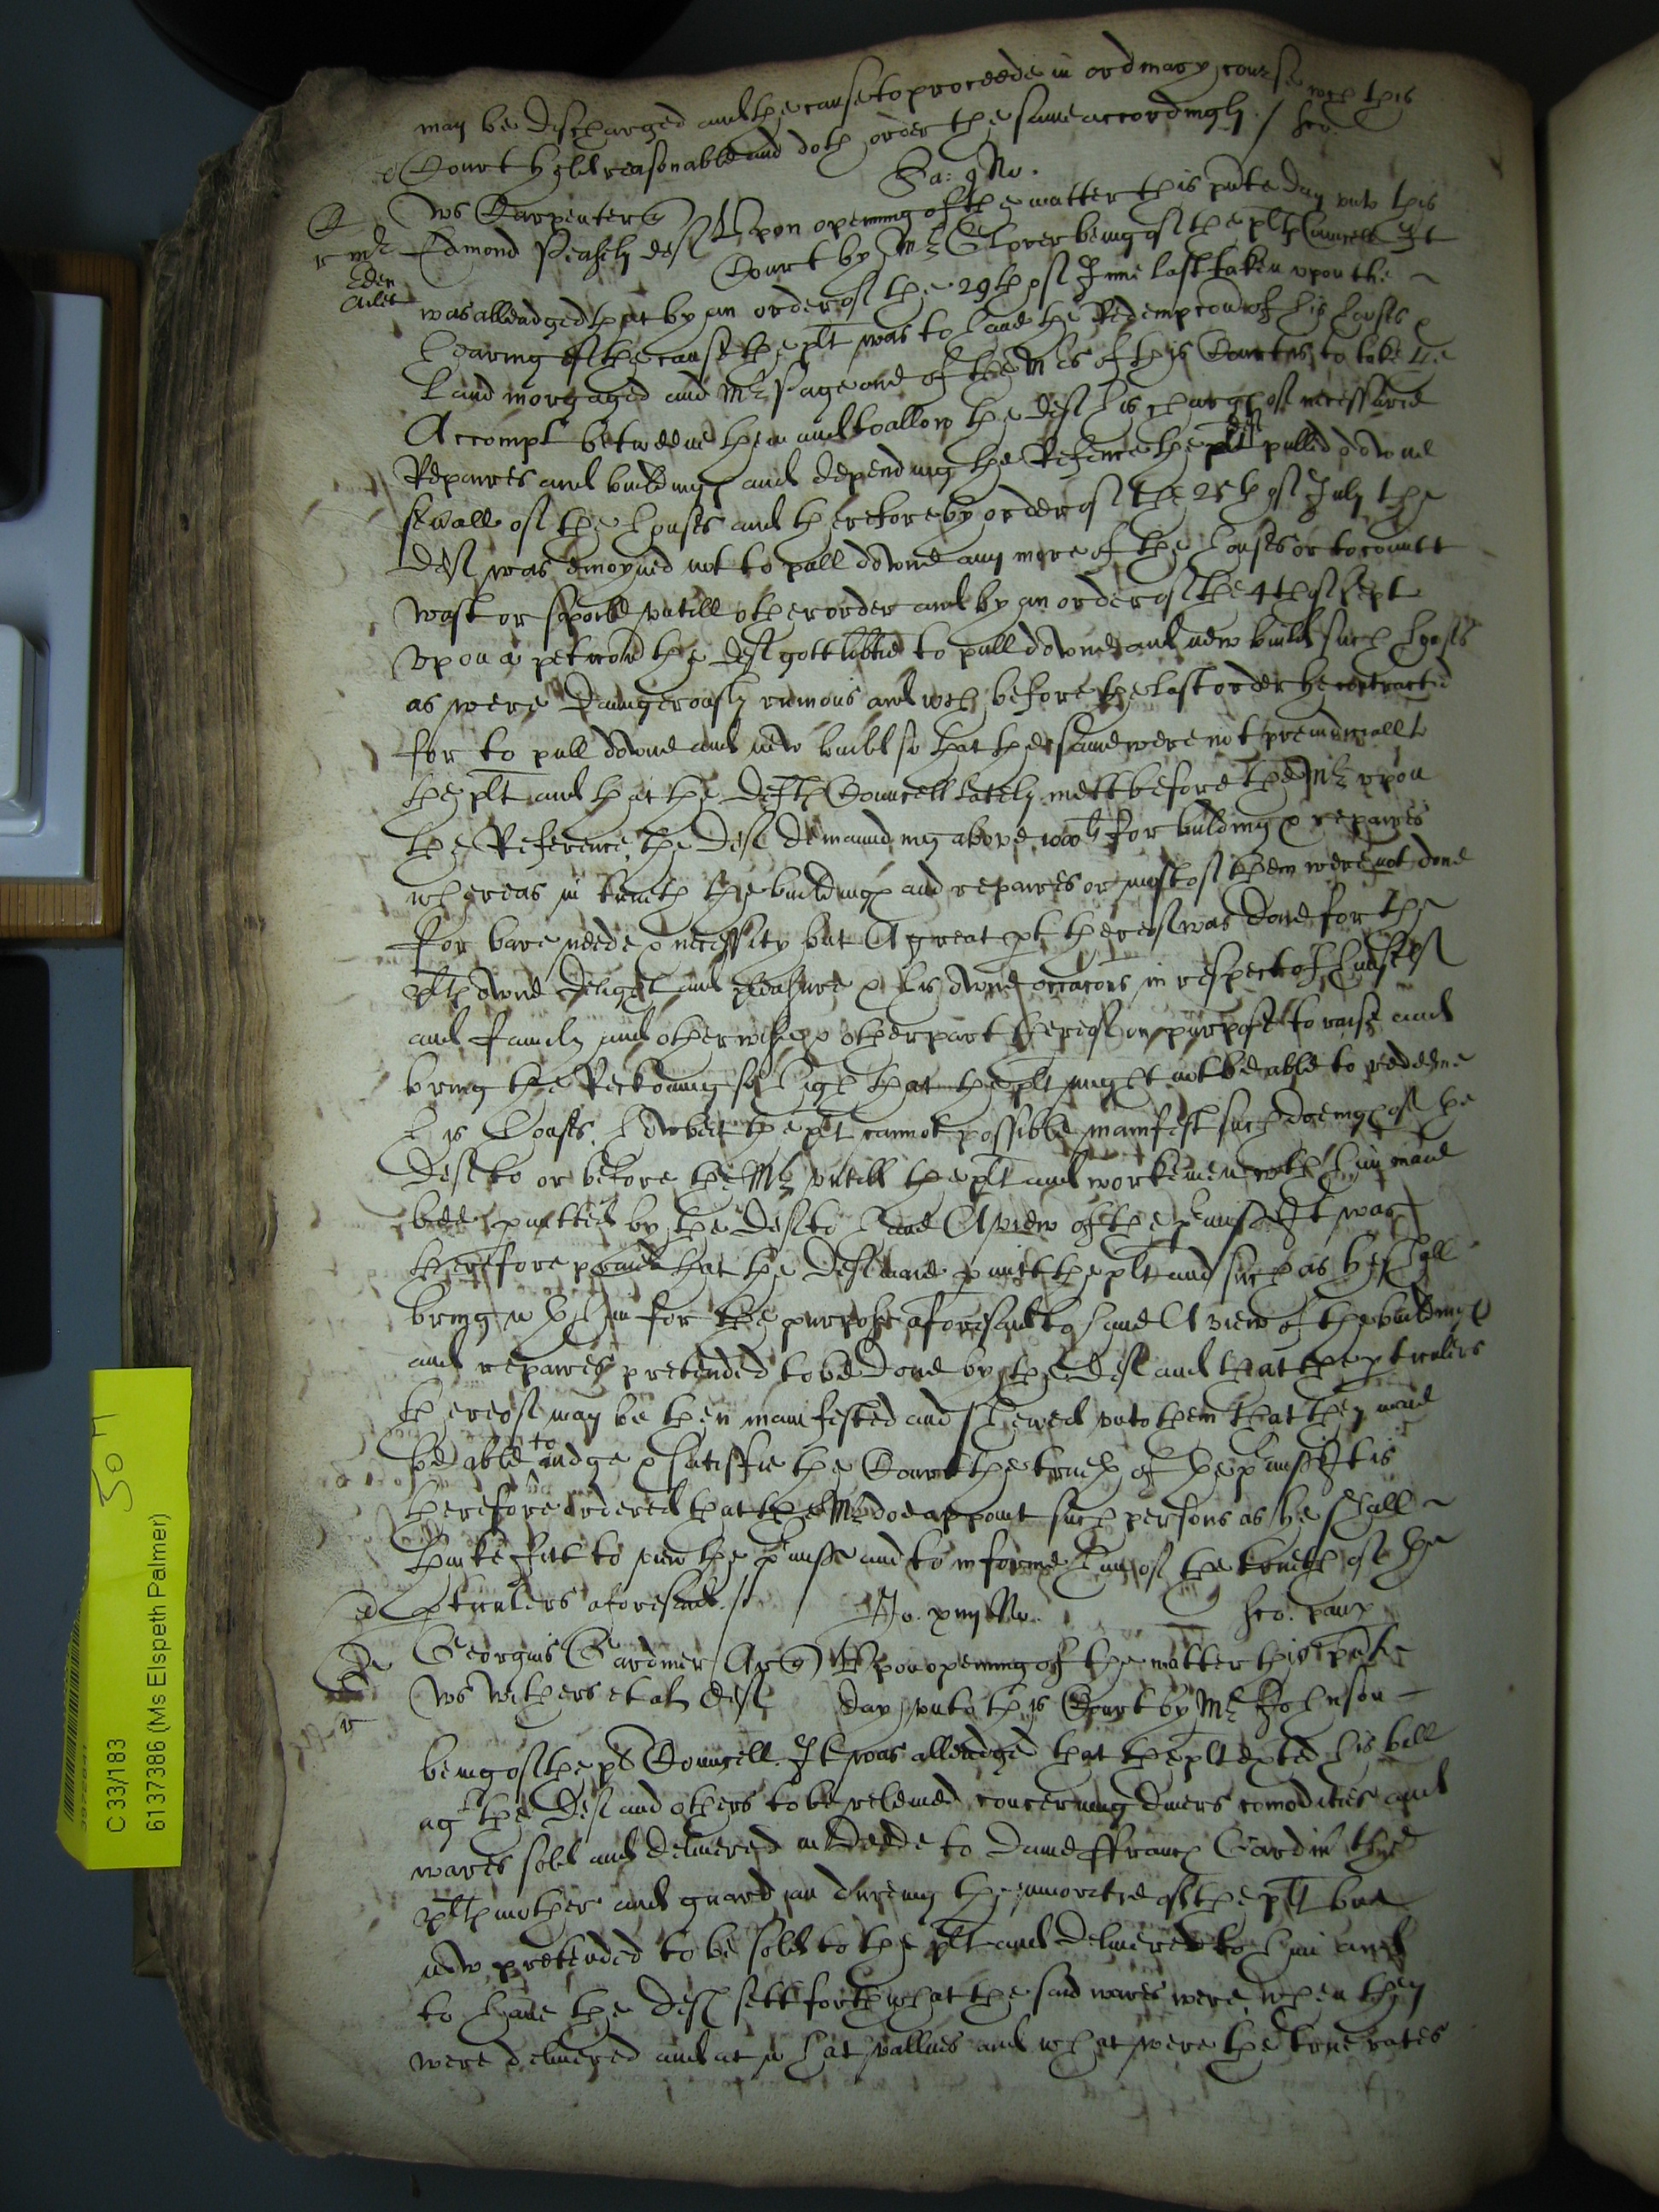 may be discharged and the cause to proceede in ordinary course wch this
Court held reasonable and doth order the same accordingly /
Sa: 9 No.
Ws Carpenter
Edmond Peashly def Upon opening of the matter this pnte day unto this
Court by Mr Glover being of the plts Councell It
was alleadged that by an order of the 29th of June last taken upon the
hearing of the cause the plt was to have the Redempcon of his houses &
Land morgaged and Mr Page one of the Mrs of this Court was to take the
Accompt betweene them and to allow the def his charges of necessarie
Repaires and buildings and depending the Reference the def pulled downe
sevall of the houses and therefore by order of the 25th of July the
def was enioyned not to pull downe any more of the houses or to comitt
wast or spoile untill other order and by an order of the 4th of Sept
upon a peticon the def gott libtie to pull downe and new build such houses
as were daungerously ruinous and wch before the last order he contracted
for to pull downe and new build so that the same were not preiudiciall to
the plt and that the defts Councell lately mett before the Mr upon
the Reference, the def demaunding above 1000li for building & repaires
whereas in truth the buildings and repaires or most of them were not done
for bare neede & necessity but A great pt thereof was done for the
plts owne delight and pleasure & his owne occacons in respect of himself
and family and otherwise & other part thereof on purpose to raise and
bring the Reckoning so high that the plt might not be able to redeeme
his houses. Howbeit the plt cannot possible manifest such doeings of the
def to or before the Mr untill the plt and workemen wth him maie
bee pmitted by the def to have A view of the pmisses It was
therefore praied that the def maie pmitt the plt and such as he shall
bring wth him for the purpose aforesaid to have A view of the buildings
and repaires pretended to be done by the def and that the pticulers
thereof may be then manifested and shewed unto them that they maie
be able to iudge & satisfie the Court the truth of the pmisses It is
therefore ordered that the Mr doe appoint such persons as he shall
thinke fitt to view the pmisses and to informe him of the truth of the
pticulers aforesaid. /
Jo. xiiij No.
Georgius Gardiner Ar Upon opening of the matter this pnte
Ws Withers et al def day unto this Court by Mr Johnson
being of the pls Councell. It was alleadged that the plt exted his bill
agt the def and others to be releived concerning divers comodities and
wares sold and delivered in deede to Dame ffrances Gardin the
plts mother and guardian during the minoritie of the plt but
now pretended to be sold to the plt and delivered to him and
to have the def sett forth what the said wares were, when they
were delivered and at what vallues and what were the true rates
30
C 33/183
61 37386 (Ms Elspeth Palmer)